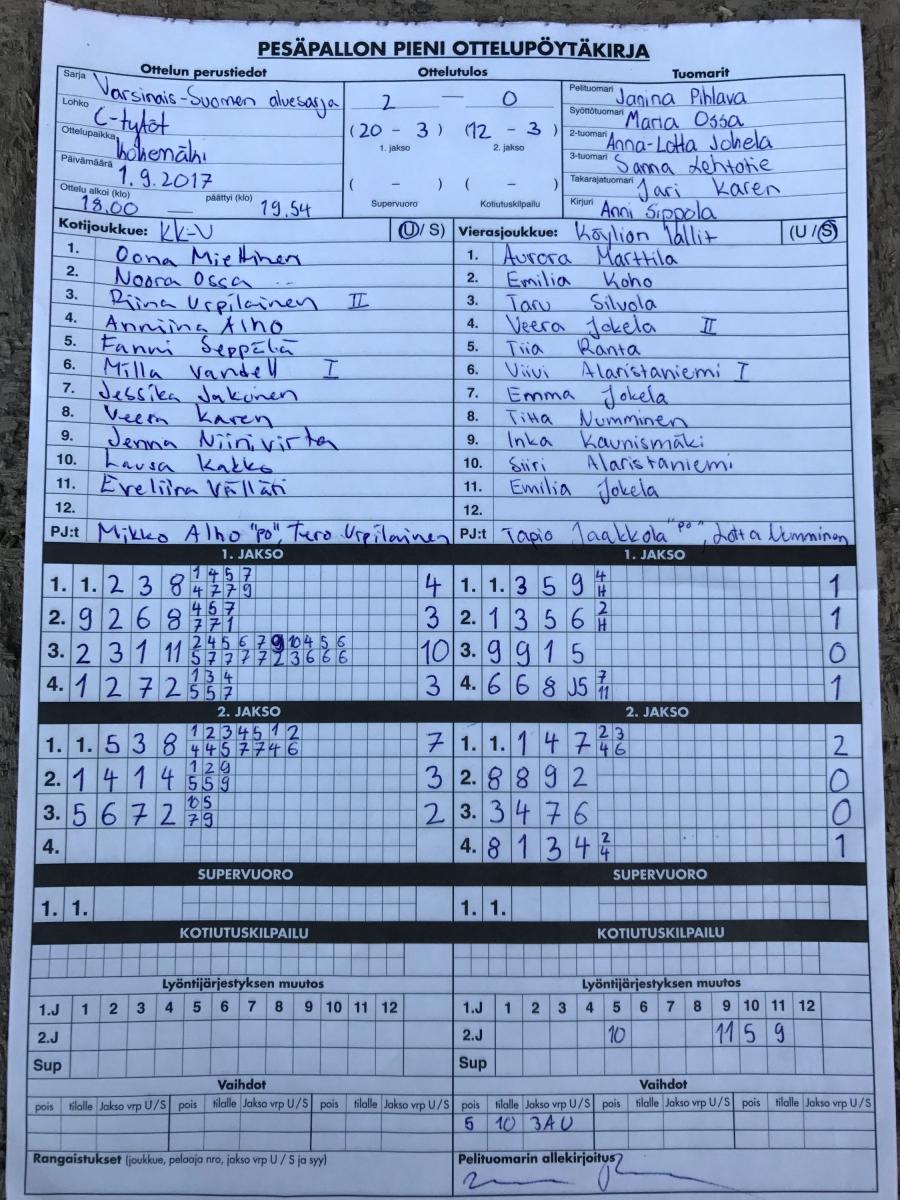 PESÄPALLON PIENI OTTELUPÖYTÄKIRJA
Ottelun perustiedot Ottelutulos Tuomarit
Sarja Varsinais-Suomen aluesarja
Lohko C-tytöt
Ottelupaikka Kokemäki
Päivämäärä 1.9.2017
Ottelu alkoi (klo) 18.00 — päättyi (klo) 19.54
2 — 0
(20 - 3) (12 - 3)
1. jakso 2. jakso
( - ) ( - )
Supervuoro Kotiutuskilpailu
Pelituomari Janina Pihlava
Syöttötuomari Maria Ossa
2-tuomari Anna-Lotta Jokela
3-tuomari Sanna Lehtotie
Takarajatuomari Jari Karen
Kirjuri Anni Sippola
Kotijoukkue: KK-V (U/S)
1. Oona Miettinen
2. Noora Ossa
3. Riina Urpilainen II
4. Anniina Alho
5. Fanni Seppälä
6. Milla Vandell I
7. Jessika Jakonen
8. Veera Karen
9. Jenna Niinivirta
10. Laura Kakko
11. Eveliina Välläri
12.
PJ:t Mikko Alho "po", Tero Urpilainen
Vierasjoukkue: Köyliön Tallit (U/S)
1. Aurora Marttila
2. Emilia Koho
3. Taru Silvola
4. Veera Jokela II
5. Tiia Ranta
6. Viivi Alaristaniemi I
7. Emma Jokela
8. Titta Numminen
9. Inka Kaunismäki
10. Siiri Alaristaniemi
11. Emilia Jokela
12.
PJ:t Tapio Jaakkola "po", Lotta Numminen
1. JAKSO
1. 1. 2 3 8 1 4 5 7 4
4 7 7 9
2. 9 2 6 8 4 5 7 3
7 7 1
3. 2 3 1 11 2 4 5 6 7 9 10 4 5 6 10
5 7 7 7 7 2 3 6 6 6
4. 1 2 7 2 1 3 4 3
5 5 7
1. JAKSO
1. 1. 3 5 9 4 1
H
2. 1 3 5 6 2 1
H
3. 9 9 1 5 0
4. 6 6 8 J5 7 1
11
2. JAKSO
1. 1. 5 3 8 1 2 3 4 5 1 2 7
4 4 5 7 7 4 6
2. 1 4 1 4 1 2 9 3
5 5 9
3. 5 6 7 2 10 5 2
7 9
4.
2. JAKSO
1. 1. 1 4 7 2 3 2
4 6
2. 8 8 9 2 0
3. 3 4 7 6 0
4. 8 1 3 4 2 1
4
SUPERVUORO SUPERVUORO
1. 1. 1. 1.
KOTIUTUSKILPAILU KOTIUTUSKILPAILU
Lyöntijärjestyksen muutos
1.J 1 2 3 4 5 6 7 8 9 10 11 12
2.J
Sup
Lyöntijärjestyksen muutos
1.J 1 2 3 4 5 6 7 8 9 10 11 12
2.J 10 11 5 9
Sup
Vaihdot
pois tilalle Jakso vrp U/S pois tilalle Jakso vrp U/S pois tilalle Jakso vrp U/S
Vaihdot
pois tilalle Jakso vrp U/S pois tilalle Jakso vrp U/S pois tilalle Jakso vrp U/S
5 10 3AU
Rangaistukset (joukkue, pelaaja nro, jakso vrp U / S ja syy)
Pelituomarin allekirjoitus